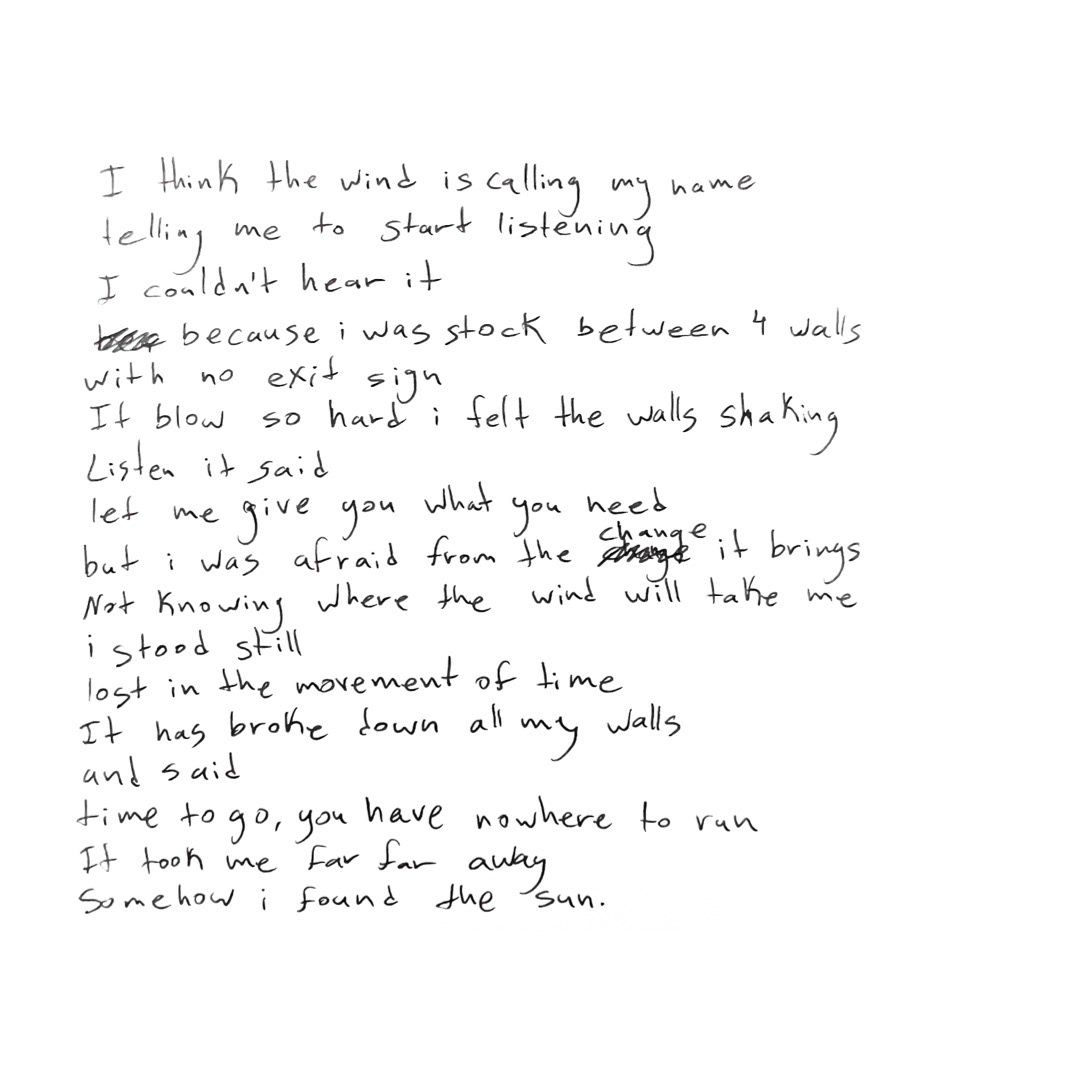 I think the wind is calling my name
telling me to start listening
I couldn't hear it
because i was stock between 4 walls
with no exit sign
It blow so hard i felt the walls shaking
Listen it said
let me give you what you need
but i was afraid from the change it brings
Not knowing where the wind will take me
i stood still
lost in the movement of time
It has broke down all my walls
and said
time to go, you have nowhere to run
It took me far far away
Somehow i found the sun.